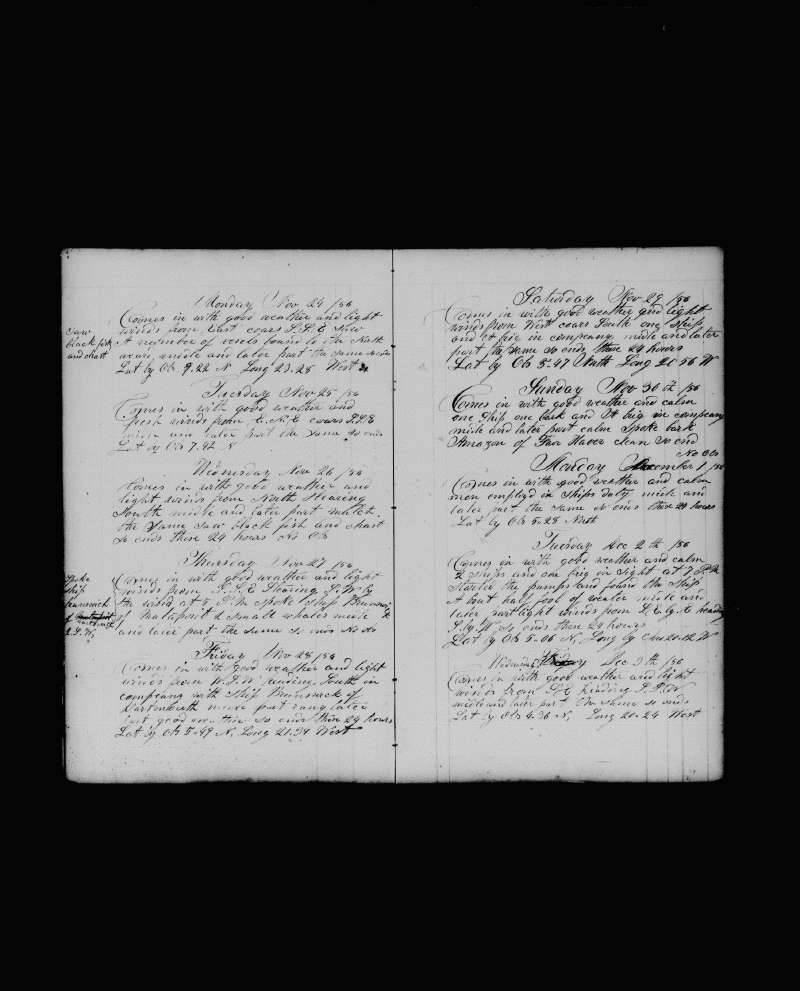 Monday Nov 24 /56
Comes in with good weather and light
winds from East coars S.S.E Saw
A number of vesels bound to the North
ward midle and later part the same so ends
Lat by Ob 9.22 N Long 23.28 West
Saw
black fish
and chast
Tuesday Nov 25 /56
Comes in with good weather and
fresh winds from E.N.E coars S.S.E
midle and later part the same so ends
Lat by Ob 7.42 N
Wednesday Nov 26 /56
Comes in with good weather and
light winds from North Stearing
South midle and later part
the Same Saw black fish and chast
So ends these 24 hours No Ob
Thursday Nov 27 /56
Comes in with good weather and light
winds from S.S.E Stearing S.W. by
the wind at 5 P.M Spoke Ship Brunswick
of Mataposit 2 Small whales midle
and later part the Same so ends No Ob
Spoke
Ship
brunswick
of
Friday Nov 28 /56
Comes in with good weather and light
winds from W.S.W heading South in
company with Ship Brunswick of
Dartmouth midle part later
part good weather So ends these 24 hours
Lat by Ob 5.49 N, Long 21.34 West
Saturday Nov 29 /56
Comes in with good weather and light
winds from West coars South one Ship
and H brig in company midle and later
part the same so ends these 24 hours
Lat by Ob 5.47 North Long 20 56 W
Sunday Nov 30 th /56
Comes in with good weather and calm
one Ship one bark and H brig in company
midle and later part calm Spoke bark
Amazon of Fair Haver clean So end
No Ob
Monday December 1 /56
Comes in with good weather and calm
men employd in Ships duty midle and
later part the same so ends these 24 hours
Lat by Ob 5.28 North
Tuesday Dec 2 th /56
Comes in with good weather and calm
2 Ships and one brig in Sight at 7 P.M
Started the pumps and found the Ship
A bout half foot of water midle and
later part light winds from S.E by E heading
S. by W So ends these 24 hours
Lat by Ob 5.06 N, Long by Chro 20.12 W
Wednesday Dec 3 th /56
Comes in with good weather and light
winds from S.E heading S.S.W
midle and later part the same so ends
Lat by Ob 4.36 N, Long 20.24 West